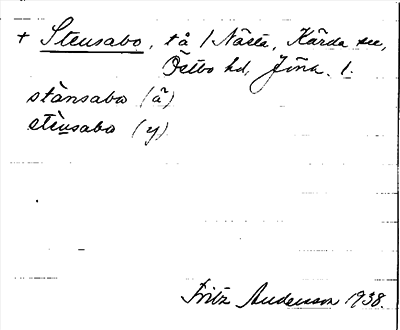 + Stensabo, tå / Nästa, Kärda sn,
Östbo hd, Jönk. l.
stànsabo (ä)
stènsabo (y)
Fritz Andersson 1938.